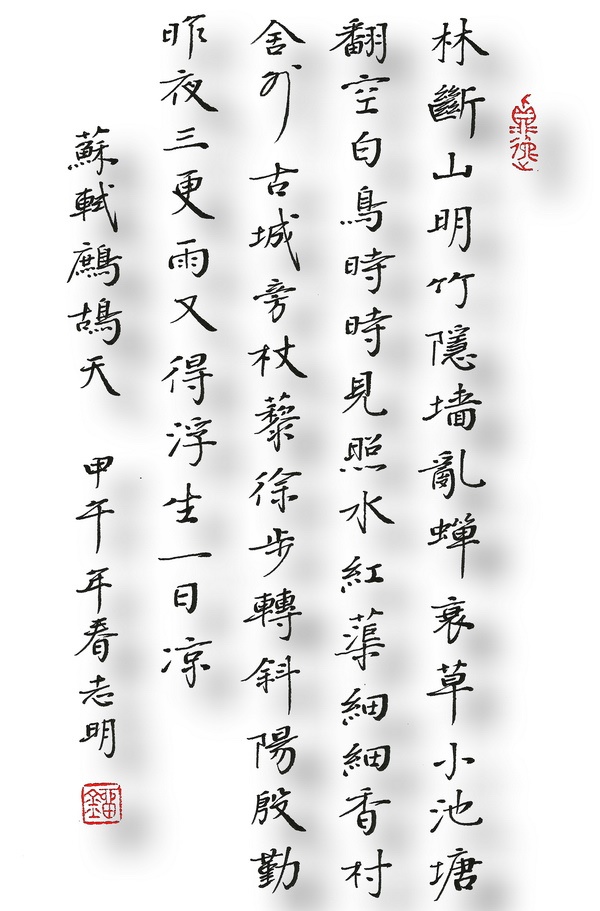 林斷山明竹隱墙亂蟬衰草小池塘
翻空白鳥時時見照水紅蕖細細香村
舍外古城旁杖藜徐步轉斜陽殷勤
昨夜三更雨又得浮生一日凉
蘇軾鷓鴣天 甲午年春志明